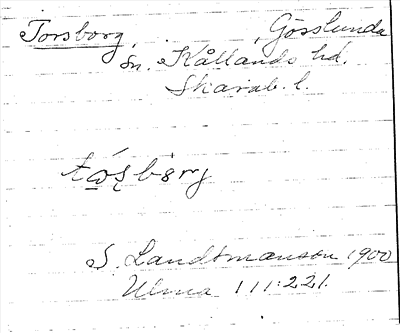 Torsborg, Gösslunda
sn. Kållands hd.
Skarab. l.
S. Landtmanson 1900
Ulma 111:221.